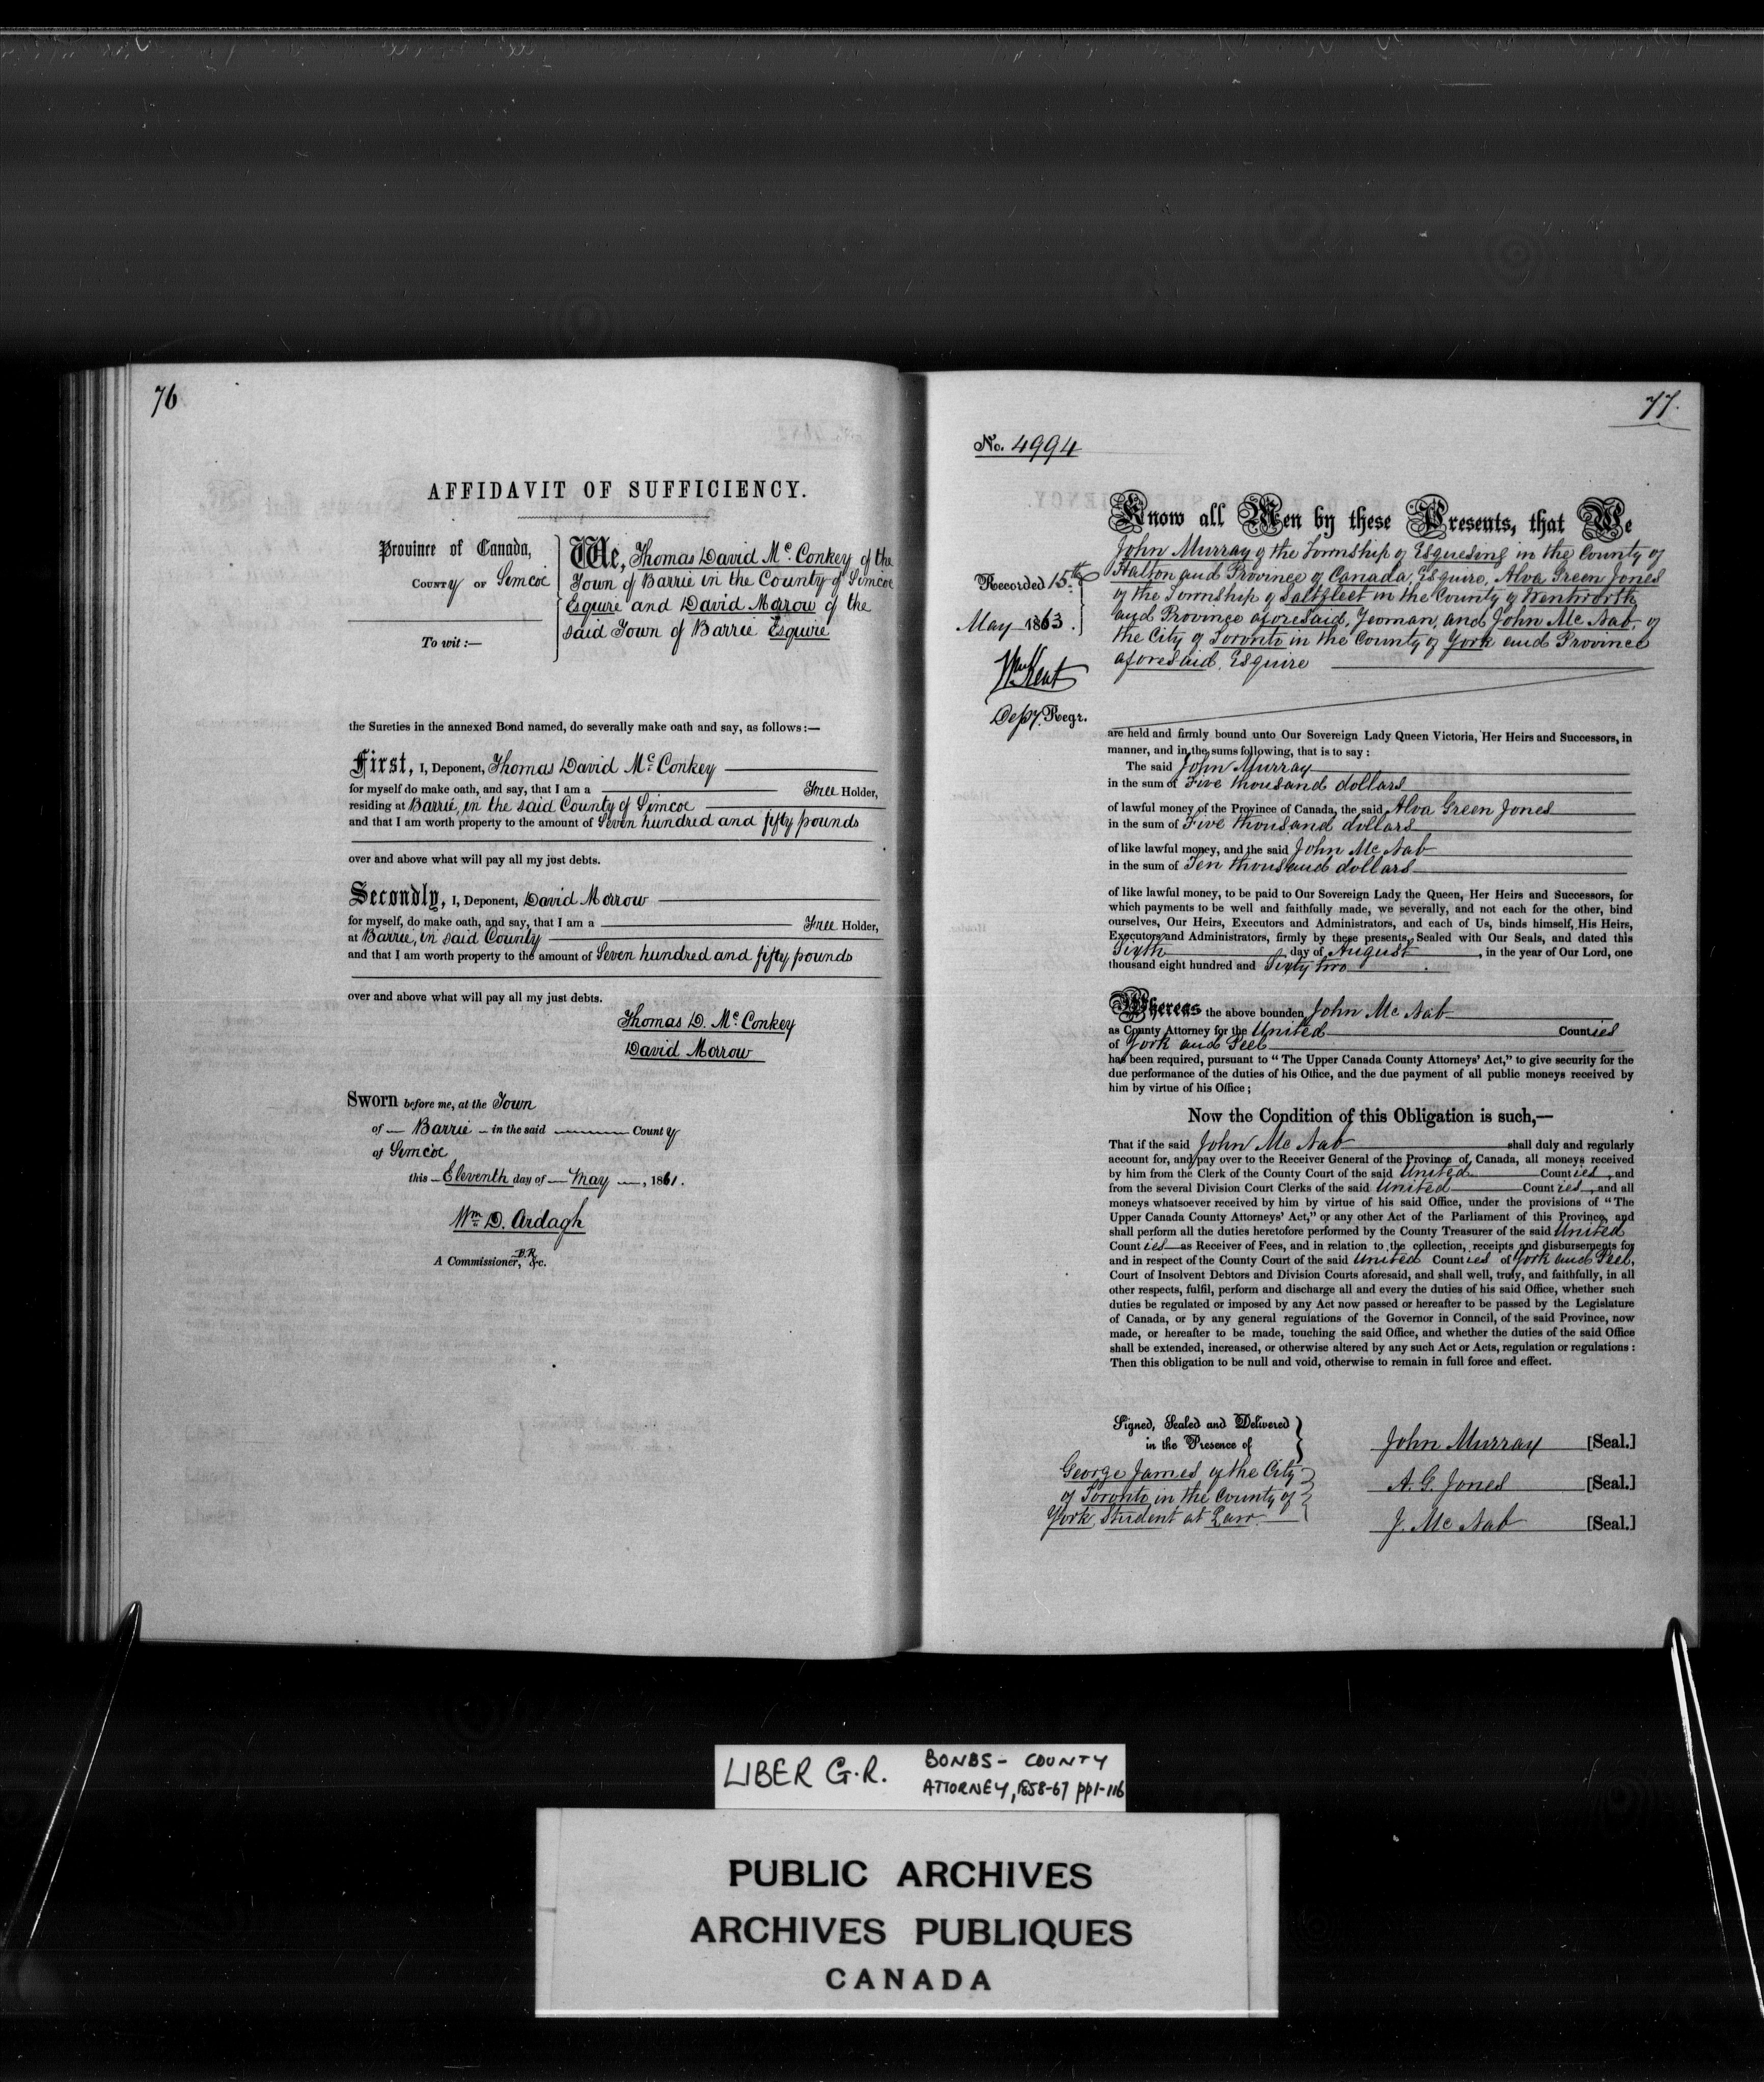 76
AFFIDAVIT OF SUFFICIENCY.
Province of Canada,
County of Simcoe
To wit:—
We, Thomas David Mc. Conkey of the
Town of Barrie in the County of Simcoe
Esquire and David Morrow of the
said Town of Barrie Esquire
the Sureties in the annexed Bond named, do severally make oath and say, as follows:—
First, I, Deponent, Thomas David Mc. Conkey
for myself do make oath, and say, that I am a Free Holder,
residing at Barrie, in the said County of Simcoe
and that I am worth property to the amount of Seven hundred and fifty pounds
over and above what will pay all my just debts.
Secondly, I, Deponent, David Morrow
for myself, do make oath, and say, that I am a Free Holder,
at Barrie, in said County
and that I am worth property to the amount of Seven hundred and fifty pounds
over and above what will pay all my just debts.
Thomas D. Mc. Conkey
David Morrow
Sworn before me, at the Town
of — Barrie — in the said County
of Simcoe
this — Eleventh day of — May —, 1861.
Wm. D. Ardagh
A Commissioner, B.R. &c.
77.
No. 4994
Know all Men by these Presents, that We
John Murray of the Township of Esquesing in the County of
Halton and Province of Canada, Esquire, Alva Green Jones
of the Township of Saltfleet in the County of Wentworth
and Province aforesaid, Yeoman, and John Mc Nab, of
the City of Toronto in the County of York and Province
aforesaid, Esquire
Recorded 15th
May 1863.
Wm Kent
Depy. Regr.
are held and firmly bound unto Our Sovereign Lady Queen Victoria, Her Heirs and Successors, in
manner, and in the sums following, that is to say:
The said John Murray
in the sum of Five thousand dollars
of lawful money of the Province of Canada, the said Alva Green Jones
in the sum of Five thousand dollars
of like lawful money, and the said John Mc Nab
in the sum of Ten thousand dollars
of like lawful money, to be paid to Our Sovereign Lady the Queen, Her Heirs and Successors, for
which payments to be well and faithfully made, we severally, and not each for the other, bind
ourselves, Our Heirs, Executors and Administrators, and each of Us, binds himself, His Heirs,
Executors and Administrators, firmly by these presents, Sealed with Our Seals, and dated this
Sixth day of August, in the year of Our Lord, one
thousand eight hundred and Sixty two
Whereas the above bounden John Mc Nab
as County Attorney for the United Counties
of York and Peel
has been required, pursuant to "The Upper Canada County Attorneys' Act," to give security for the
due performance of the duties of his Office, and the due payment of all public moneys received by
him by virtue of his Office;
Now the Condition of this Obligation is such,—
That if the said John Mc Nab shall duly and regularly
account for, and pay over to the Receiver General of the Province of Canada, all moneys received
by him from the Clerk of the County Court of the said United Counties, and
from the several Division Court Clerks of the said United Counties, and all
moneys whatsoever received by him by virtue of his said Office, under the provisions of "The
Upper Canada County Attorneys' Act," or any other Act of the Parliament of this Province, and
shall perform all the duties heretofore performed by the County Treasurer of the said United
Counties as Receiver of Fees, and in relation to the collection, receipts and disbursements for
and in respect of the County Court of the said United Counties of York and Peel,
Court of Insolvent Debtors and Division Courts aforesaid, and shall well, truly, and faithfully, in all
other respects, fulfil, perform and discharge all and every the duties of his said Office, whether such
duties be regulated or imposed by any Act now passed or hereafter to be passed by the Legislature
of Canada, or by any general regulations of the Governor in Council, of the said Province, now
made, or hereafter to be made, touching the said Office, and whether the duties of the said Office
shall be extended, increased, or otherwise altered by any such Act or Acts, regulation or regulations:
Then this obligation to be null and void, otherwise to remain in full force and effect.
Signed, Sealed and Delivered
in the Presence of
George James of the City
of Toronto in the County of
York, Student at Law.
John Murray [Seal.]
A. G. Jones [Seal.]
J. Mc Nab [Seal.]
LIBER G.R. BONBS - COUNTY
ATTORNEY, 1858-67 pp1-116
PUBLIC ARCHIVES
ARCHIVES PUBLIQUES
CANADA